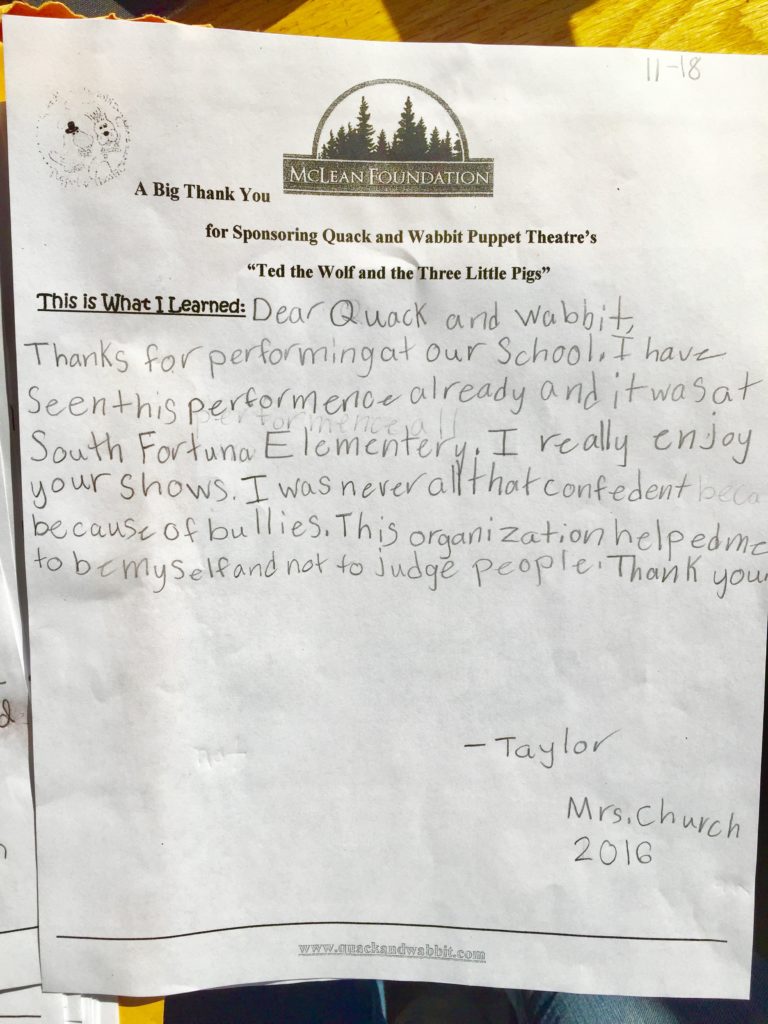 11-18
McLEAN FOUNDATION
A Big Thank You
for Sponsoring Quack and Wabbit Puppet Theatre's
"Ted the Wolf and the Three Little Pigs"
This is What I Learned: Dear Quack and Wabbit,
Thanks for performing at our School. I have
Seen this performence already and it was at
South Fortuna Elementery. I really enjoy
your shows. I was never all that confedent beca
because of bullies. This organization helped me
to be myself and not to judge people. Thank you
- Taylor
Mrs. Church
2016
www.quackandwabbit.com